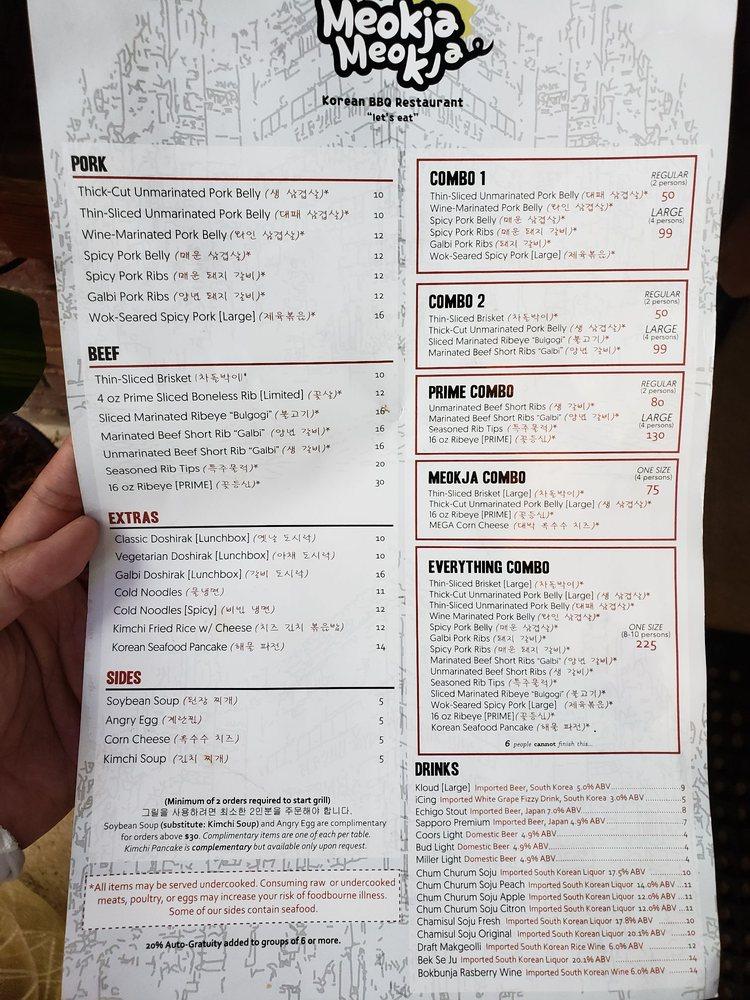 Meokja
Meokja
Korean BBQ Restaurant
"let's eat"
PORK
Thick-Cut Unmarinated Pork Belly (생 삼겹살)* 10
Thin-Sliced Unmarinated Pork Belly (대패 삼겹살)* 10
Wine-Marinated Pork Belly (와인 삼겹살)* 12
Spicy Pork Belly (매운 삼겹살)* 12
Spicy Pork Ribs (매운 돼지 갈비)* 12
Galbi Pork Ribs (양념 돼지 갈비)* 12
Wok-Seared Spicy Pork [Large] (제육볶음)* 16
BEEF
Thin-Sliced Brisket (차돌박이)* 10
4 oz Prime Sliced Boneless Rib [Limited] (꽃살)* 12
Sliced Marinated Ribeye "Bulgogi" (불고기)* 16
Marinated Beef Short Rib "Galbi" (양념 갈비)* 16
Unmarinated Beef Short Rib "Galbi" (생 갈비)* 16
Seasoned Rib Tips (특주물럭)* 20
16 oz Ribeye [PRIME] (꽃등심)* 30
EXTRAS
Classic Doshirak [Lunchbox] (옛날 도시락) 10
Vegetarian Doshirak [Lunchbox] (야채 도시락) 10
Galbi Doshirak [Lunchbox] (갈비 도시락) 16
Cold Noodles (물냉면) 11
Cold Noodles [Spicy] (비빔 냉면) 12
Kimchi Fried Rice w/ Cheese (치즈 김치 볶음밥) 12
Korean Seafood Pancake (해물 파전) 14
SIDES
Soybean Soup (된장 찌개) 5
Angry Egg (계란찜) 5
Corn Cheese (옥수수 치즈) 5
Kimchi Soup (김치 찌개) 5
(Minimum of 2 orders required to start grill)
그릴을 사용하려면 최소한 2인분을 주문해야 합니다.
Soybean Soup (substitute: Kimchi Soup) and Angry Egg are complimentary
for orders above $30. Complimentary items are one of each per table.
Kimchi Pancake is complementary but available only upon request.
*All items may be served undercooked. Consuming raw or undercooked
meats, poultry, or eggs may increase your risk of foodbourne illness.
Some of our sides contain seafood.
20% Auto-Gratuity added to groups of 6 or more.
COMBO 1
REGULAR
(2 persons)
50
LARGE
(4 persons)
99
Thin-Sliced Unmarinated Pork Belly (대패 삼겹살)*
Wine-Marinated Pork Belly (와인 삼겹살)*
Spicy Pork Belly (매운 삼겹살)*
Spicy Pork Ribs (매운 돼지 갈비)*
Galbi Pork Ribs (돼지 갈비)*
Wok-Seared Spicy Pork [Large] (제육볶음)*
COMBO 2
REGULAR
(2 persons)
50
LARGE
(4 persons)
99
Thin-Sliced Brisket (차돌박이)*
Thick-Cut Unmarinated Pork Belly (생 삼겹살)*
Sliced Marinated Ribeye "Bulgogi" (불고기)*
Marinated Beef Short Ribs "Galbi" (양념 갈비)*
PRIME COMBO
REGULAR
(2 persons)
80
LARGE
(4 persons)
130
Unmarinated Beef Short Ribs (생 갈비)*
Marinated Beef Short Ribs "Galbi" (양념 갈비)*
Seasoned Rib Tips (특주물럭)*
16 oz Ribeye [PRIME] (꽃등심)*
MEOKJA COMBO
ONE SIZE
(4 persons)
75
Thin-Sliced Brisket [Large] (차돌박이)*
Thick-Cut Unmarinated Pork Belly [Large] (생 삼겹살)*
16 oz Ribeye [PRIME] (꽃등심)*
MEGA Corn Cheese (대박 옥수수 치즈)*
EVERYTHING COMBO
Thin-Sliced Brisket [Large] (차돌박이)*
Thick-Cut Unmarinated Pork Belly [Large] (생 삼겹살)*
Thin-Sliced Unmarinated Pork Belly (대패 삼겹살)*
Wine Marinated Pork Belly (와인 삼겹살)*
Spicy Pork Belly (매운 삼겹살)*
Galbi Pork Ribs (돼지 갈비)*
Spicy Pork Ribs (매운 돼지 갈비)*
Marinated Beef Short Ribs "Galbi" (양념 갈비)*
Unmarinated Beef Short Ribs (생 갈비)*
Seasoned Rib Tips (특주물럭)*
Sliced Marinated Ribeye "Bulgogi" (불고기)*
Wok-Seared Spicy Pork [Large] (제육볶음)*
16 oz Ribeye [PRIME] (꽃등심)*
Korean Seafood Pancake (해물 파전)*
ONE SIZE
(8-10 persons)
225
6 people cannot finish this...
DRINKS
Kloud [Large] Imported Beer, South Korea 5.0% ABV 9
iCing Imported White Grape Fizzy Drink, South Korea 3.0% ABV 5
Echigo Stout Imported Beer, Japan 7.0% ABV 8
Sapporo Premium Imported Beer, Japan 4.9% ABV 7
Coors Light Domestic Beer 4.9% ABV 4
Bud Light Domestic Beer 4.9% ABV 4
Miller Light Domestic Beer 4.9% ABV 4
Chum Churum Soju Imported South Korean Liquor 17.5% ABV 10
Chum Churum Soju Peach Imported South Korean Liquor 14.0% ABV 11
Chum Churum Soju Apple Imported South Korean Liquor 12.0% ABV 11
Chum Churum Soju Citron Imported South Korean Liquor 12.0% ABV 11
Chamisul Soju Fresh Imported South Korean Liquor 17.8% ABV 10
Chamisul Soju Original Imported South Korean Liquor 20.1% ABV 10
Draft Makgeolli Imported South Korean Rice Wine 6.0% ABV 12
Bek Se Ju Imported South Korean Liquor 20.1% ABV 14
Bokbunja Rasberry Wine Imported South Korean Wine 6.0% ABV 14